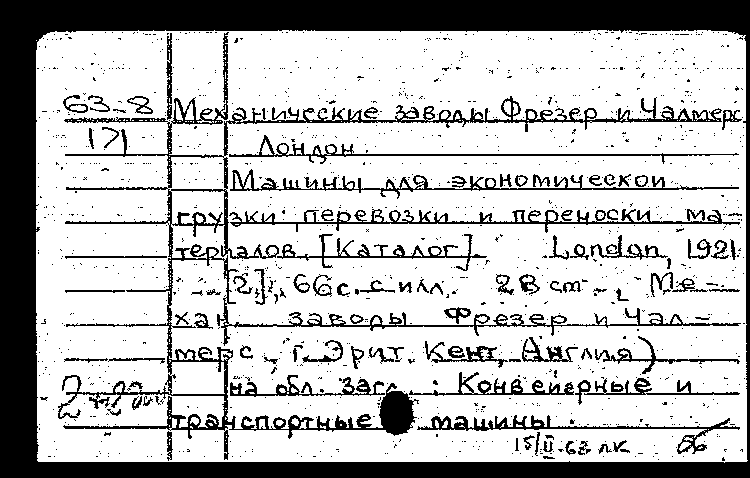 63-8 Механические заводы Фрезер и Чалмерс
171 Лондон.
Машины для экономической
грузки, перевозки и переноски ма-
териалов. [Каталог]. London, 1921
[2], 66 с. с илл. 28 cm. (Ме-
хан. заводы Фрезер и Чал-
мерс, г. Эрит. Кент, Англия)
на обл. загл.: Конвейерные и
транспортные машины.
15/II-63 лк